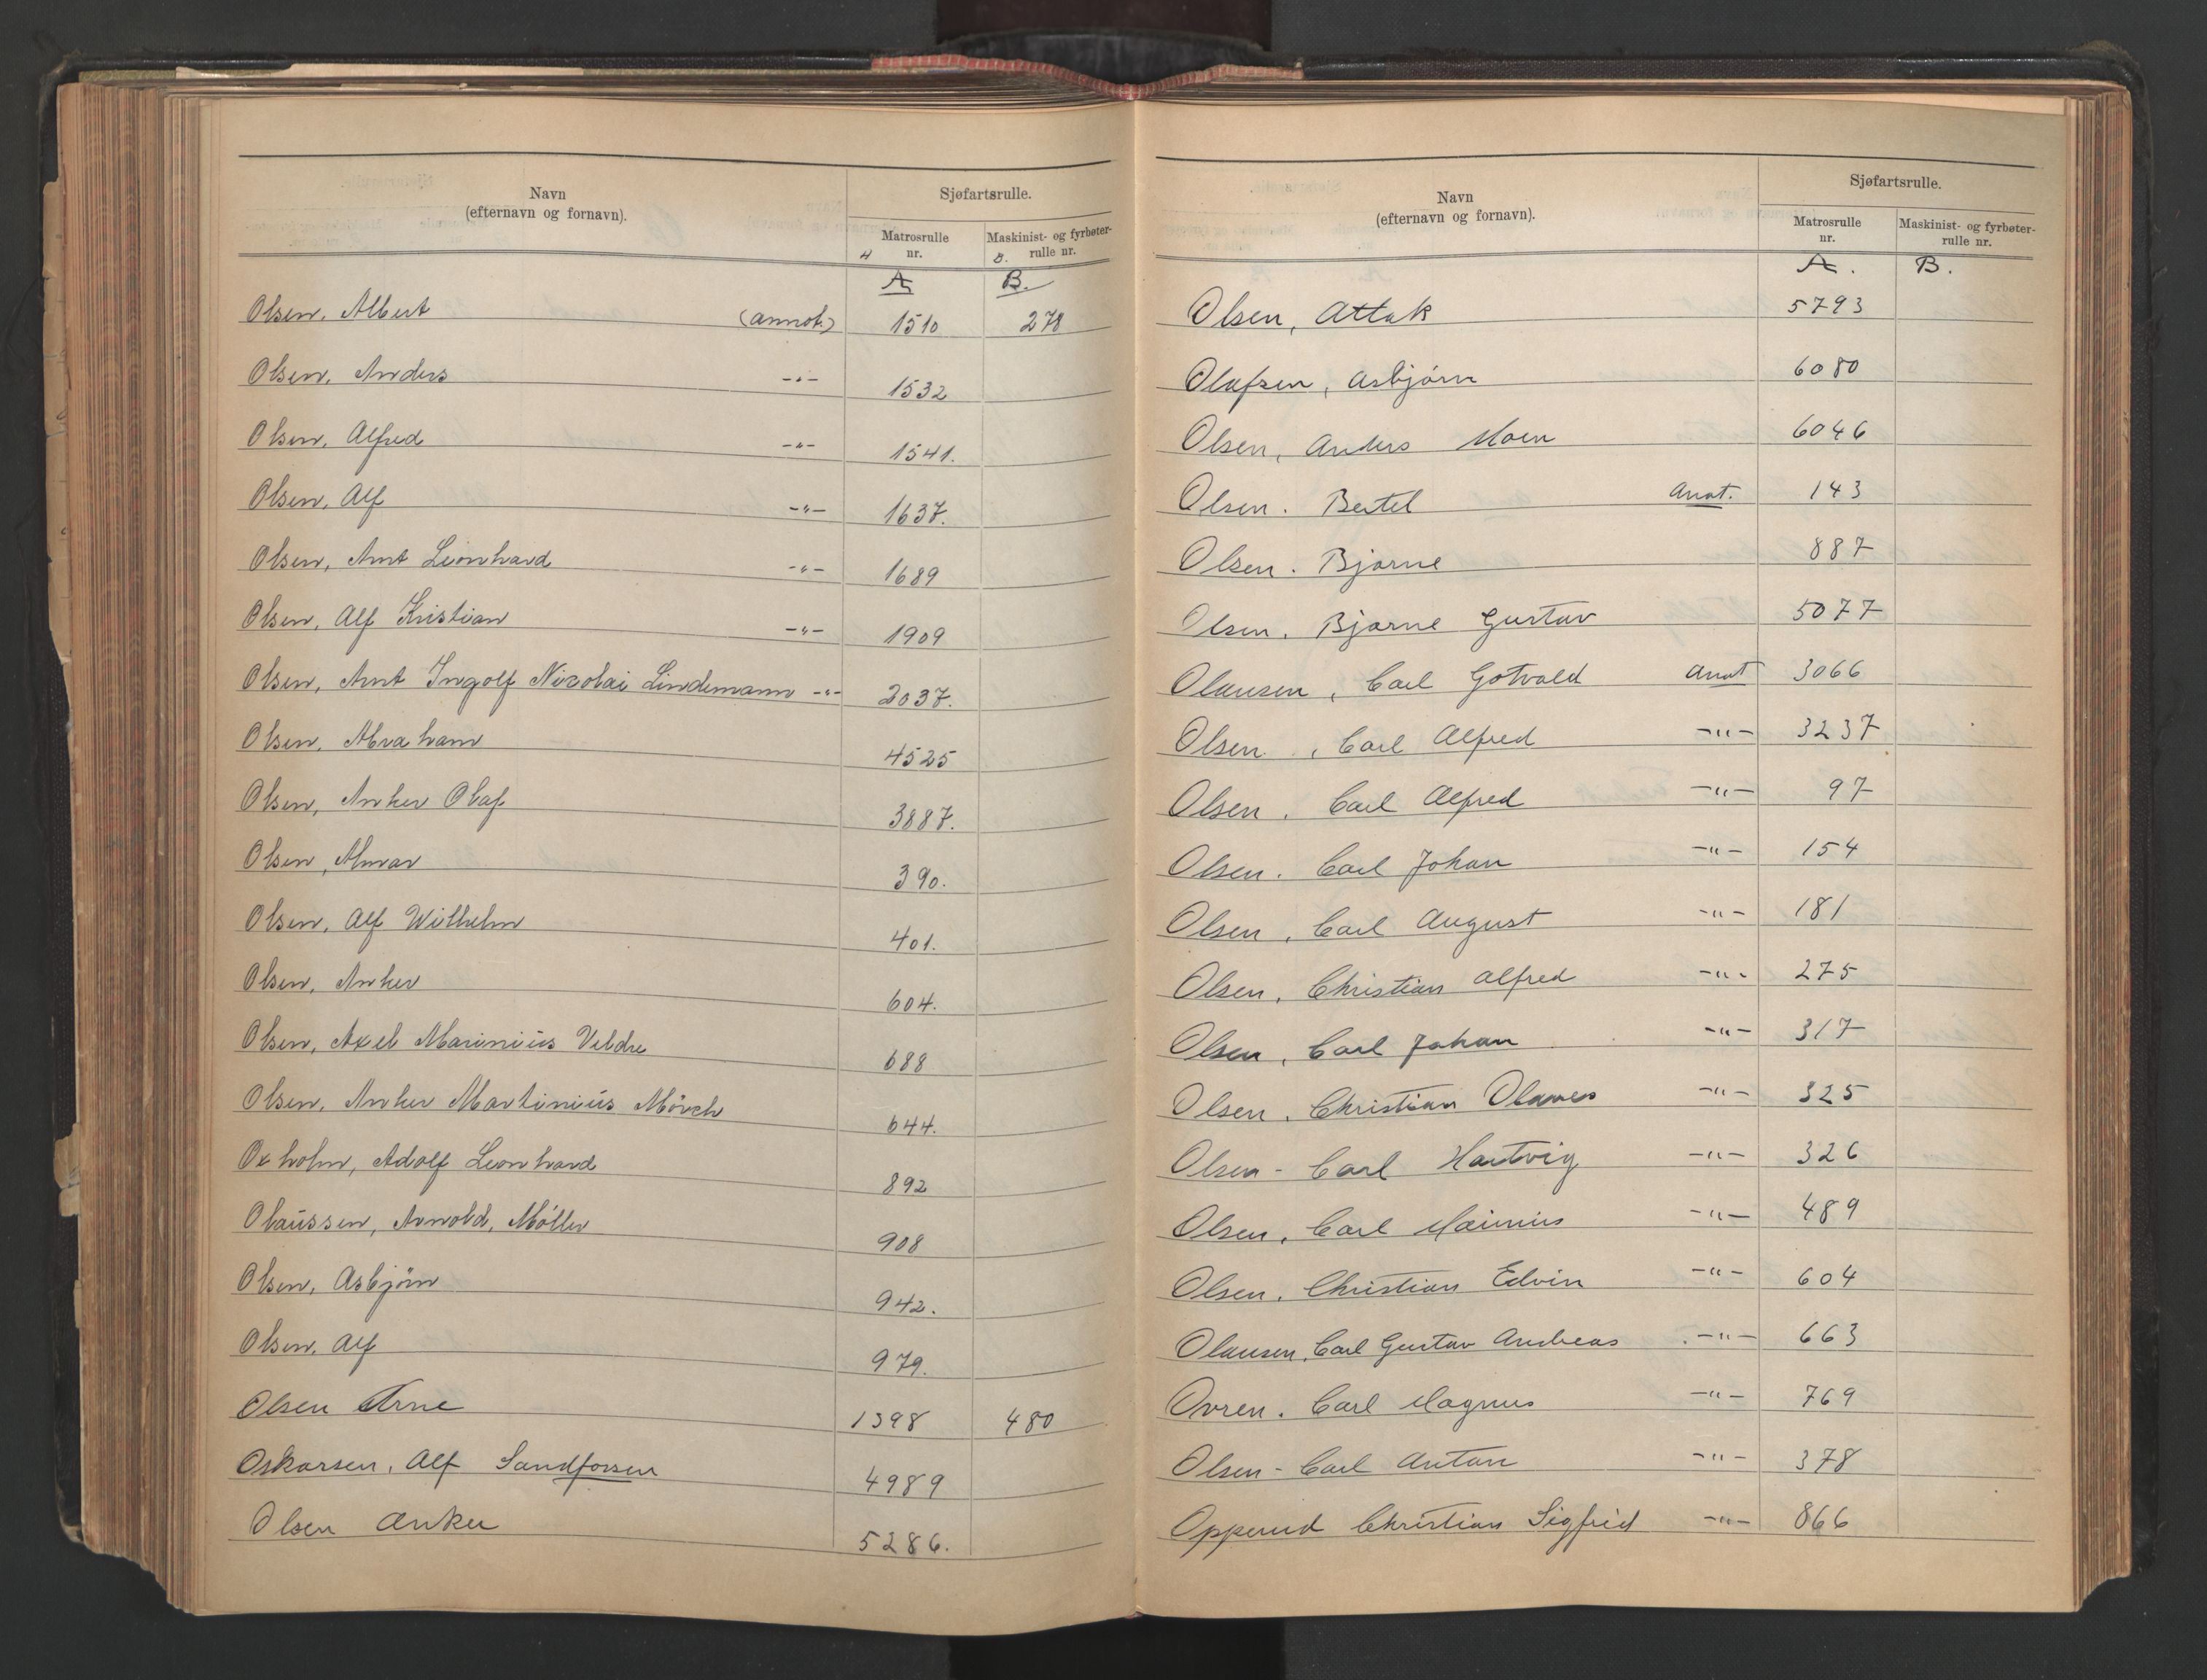 Navn
(efternavn og fornavn).
Sjøfartsrulle.
Matrosrulle nr.
Maskinist- og fyrbøter-rulle nr.
A B.
Olsen, Albert (annot.) 1510 278
Olsen, Anders -"- 1532
Olsen, Alfred -"- 1541.
Olsen, Alf -"- 1637.
Olsen, Arnt Leonhard -"- 1689
Olsen, Alf Kristian -"- 1909
Olsen, Arnt Ingolf Nicolai Lindemann -"- 2037.
Olsen, Abraham 4525
Olsen, Anker Olaf 3887.
Olsen, Almar 390.
Olsen, Alf Wilhelm 401.
Olsen, Anker 604.
Olsen, Axel Marinius Veldre 688
Olsen, Anker Martinius Mörch 644.
Oxholm, Adolf Leonhard 892
Olaussen, Arnold, Möller 908
Olsen, Asbjörn 942.
Olsen, Alf 979.
Olsen Arne 1398 480
Oskarsen, Alf Sandforsen 4989
Olsen Anker 5286.
Navn
(efternavn og fornavn).
Sjøfartsrulle.
Matrosrulle nr.
Maskinist- og fyrbøter-rulle nr.
A. B.
Olsen, Attak 5793
Olafsen, Asbjörn 6080
Olsen, Anders Moen 6046
Olsen. Bertel Anot. 143
Olsen. Bjarne 887
Olsen. Bjarne Gustav 5077
Olausen, Carl Gotvald Anot 3066
Olsen, Carl Alfred -"- 3237
Olsen. Carl Alfred -"- 97
Olsen. Carl Johan -"- 154
Olsen, Carl August -"- 181
Olsen, Christian Alfred -"- 275
Olsen, Carl Johan -"- 317
Olsen, Christian -"- 325
Olsen - Carl Hartvig -"- 326
Olsen, Carl -"- 489
Olsen. Christian Edvin -"- 604
Olausen, Carl Gustav Andreas -"- 663
Ovren. Carl Magnus -"- 769
Olsen - Carl Anton -"- 378
Opperud Christian Sigfrid -"- 866